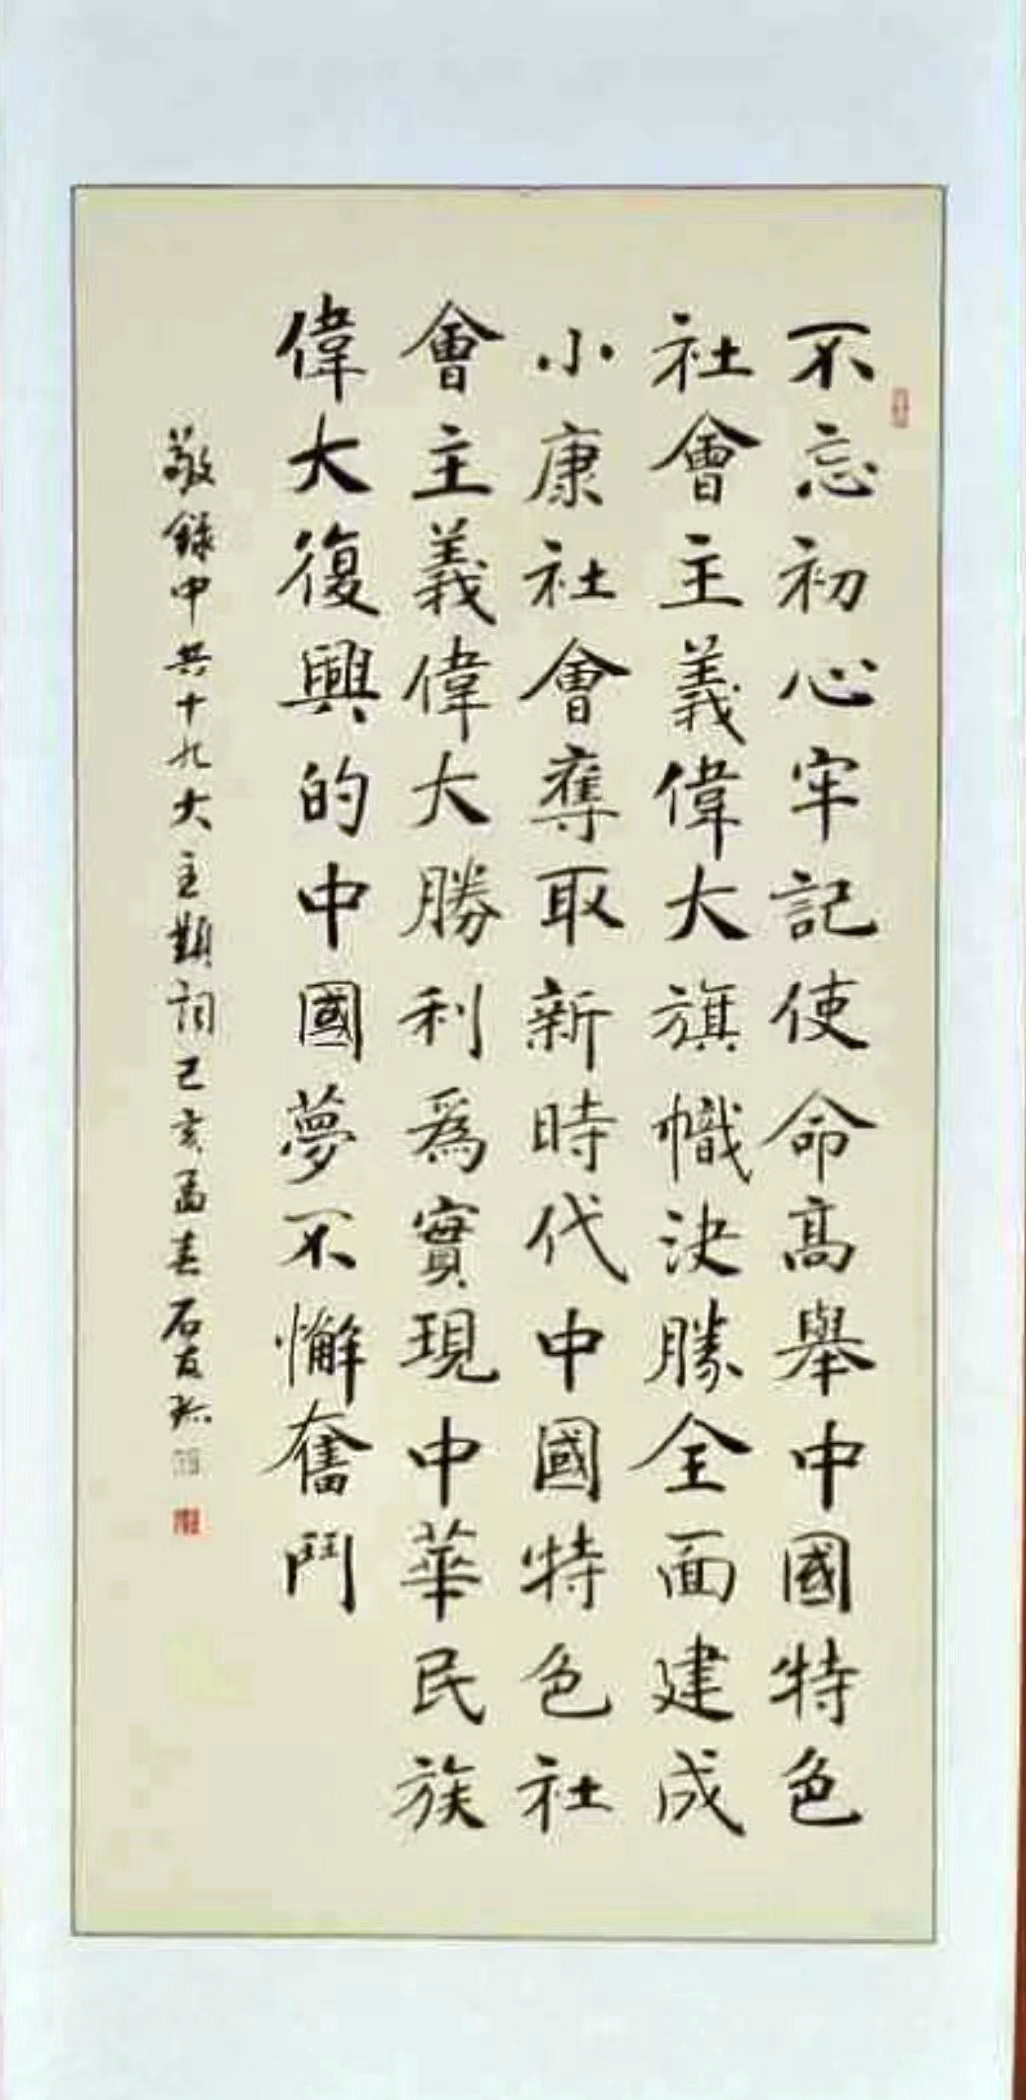 不忘初心牢記使命高舉中國特色
社會主義偉大旗幟決勝全面建成
小康社會奪取新時代中國特色社
會主義偉大勝利為實現中華民族
偉大復興的中國夢不懈奮鬥
敬錄中共十九大主題詞己亥孟春石友